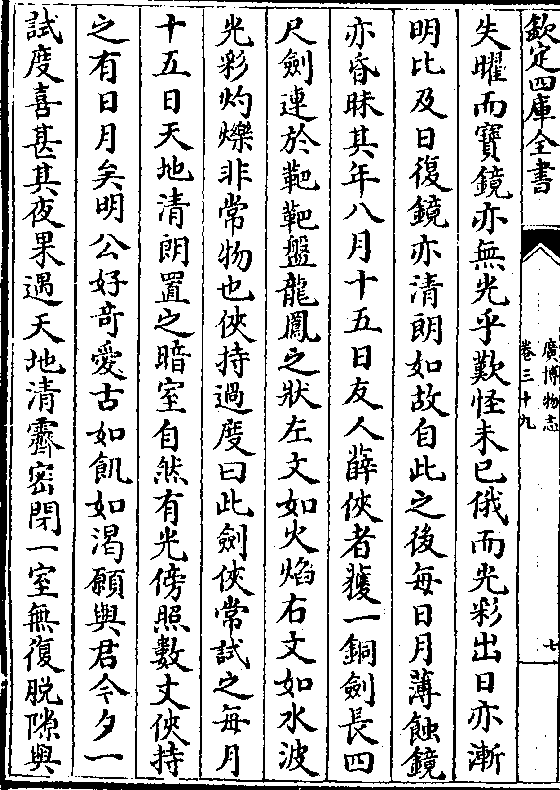 欽定四庫全書
廣博物志
卷三十九
七
失曜而寶鏡亦無光乎歎怪未已俄而光彩出日亦漸
明比及日復鏡亦清朗如故自此之後每日月薄蝕鏡
亦昏昧其年八月十五日友人薛俠者獲一銅劍長四
尺劍連於靶靶盤龍鳳之狀左文如火焰右文如水波
光彩灼爍非常物也俠持過度曰此劍俠常試之每月
十五日天地清朗置之暗室自然有光傍照數丈俠持
之有日月矣明公好奇愛古如飢如渴願與君今夕一
試度喜甚其夜果遇天地清霽密閉一室無復脫隙與